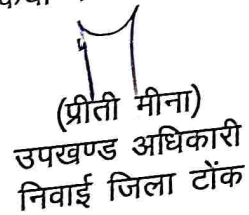 (प्रीती मीना)
उपखण्ड अधिकारी
निवाई जिला टोंक